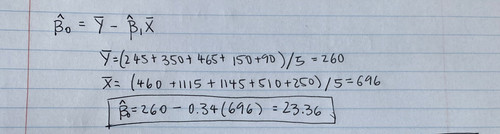 β̂₀ = Ȳ - β̂₁X̄
Ȳ = (245+350+465+150+90)/5 = 260
X̄ = (460+1115+1145+510+250)/5 = 696
β̂₀ = 260 - 0.34(696) = 23.36